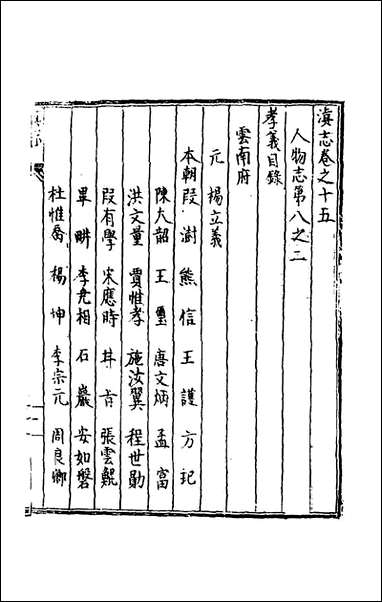 滇志卷之十五
人物志第八之二
孝義目錄
雲南府
元 楊立義
本朝段澍 熊信 王護 方玘
陳大韶 王璽 唐文炳 孟富
洪文量 賈惟孝 施汝翼 程世勛
段有學 宋應時 井旹 張雲鯤
畢畊 李先相 石巖 安如磐
杜惟喬 楊坤 李宗元 周良卿